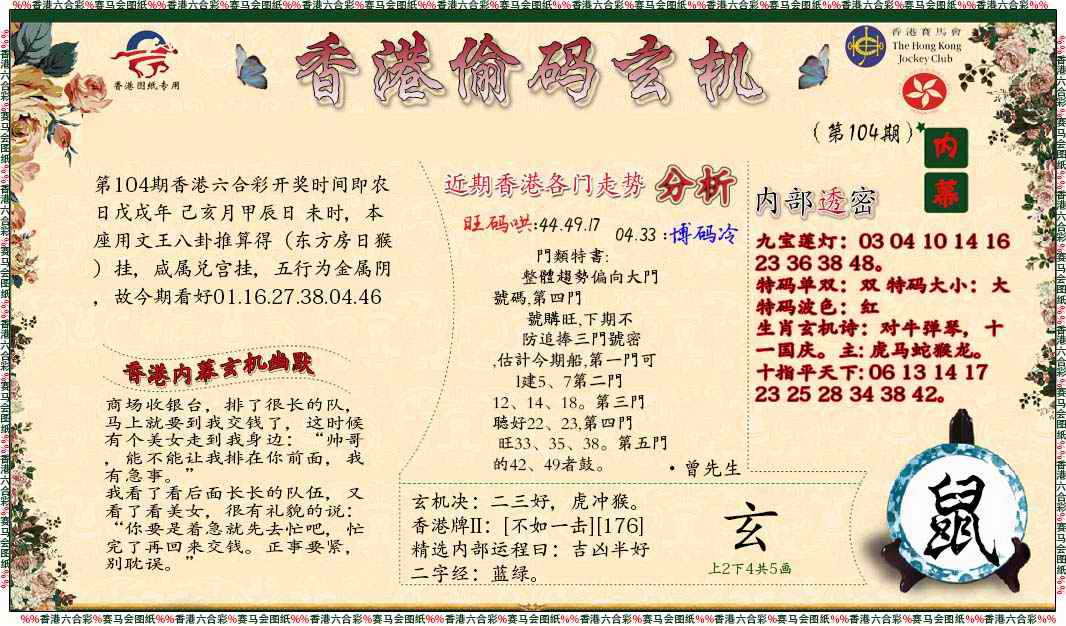 %%香港六合彩%赛马会图纸%%香港六合彩%赛马会图纸%%香港六合彩%赛马会图纸%%香港六合彩%赛马会图纸%%香港六合彩%赛马会图纸%%香港六合彩%赛马会图纸%%香港六合彩%%
香港图纸专用
香港偷码玄机
香港賽馬會
The Hong Kong
Jockey Club
(第104期)
内
幕
第104期香港六合彩开奖时间即农
日戊戌年 己亥月甲辰日 未时，本
座用文王八卦推算得（东方房日猴
）挂，咸属兑宫挂，五行为金属阴
，故今期看好01.16.27.38.04.46
香港内幕玄机幽默
商场收银台，排了很长的队，
马上就要到我交钱了，这时候
有个美女走到我身边：“帅哥
，能不能让我排在你前面，我
有急事。”
我看了看后面长长的队伍，又
看了看美女，很有礼貌的说：
“你要是着急就先去忙吧，忙
完了再回来交钱。正事要紧，
别耽误。”
近期香港各门走势 分析
旺码哄:44.49.17
04.33 :博码冷
門類特書:
整體趨勢偏向大門
號碼,第四門
號購旺,下期不
防追捧三門號密
,估計今期船,第一門可
l建5、7第二門
12、14、18。第三門
聽好22、23,第四門
旺33、35、38。第五門
的42、49者鼓。
·曾先生
内部透密
九宝莲灯：03 04 10 14 16
23 36 38 48。
特码单双：双 特码大小：大
特码波色：红
生肖玄机诗：对牛弹琴，十
一国庆。主: 虎马蛇猴龙。
十指平天下: 06 13 14 17
23 25 28 34 38 42。
玄机决：二三好，虎冲猴。
香港牌II：[不如一击][176]
精选内部运程曰：吉凶半好
二字经：蓝绿。
玄
上2下4共5画
鼠
%%香港六合彩%赛马会图纸%%香港六合彩%赛马会图纸%%香港六合彩%赛马会图纸%%香港六合彩%赛马会图纸%%香港六合彩%赛马会图纸%%香港六合彩%赛马会图纸%%香港六合彩%%